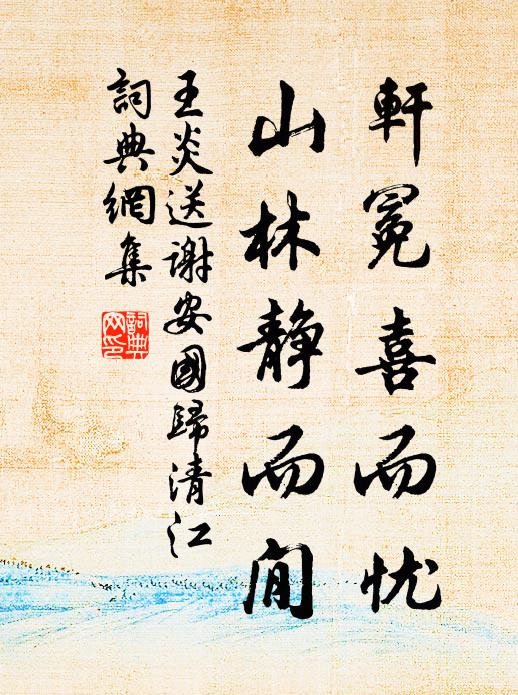 軒冕喜而忧
山林静而閒
王炎送谢安國歸清江
詞典網集
詞典網印